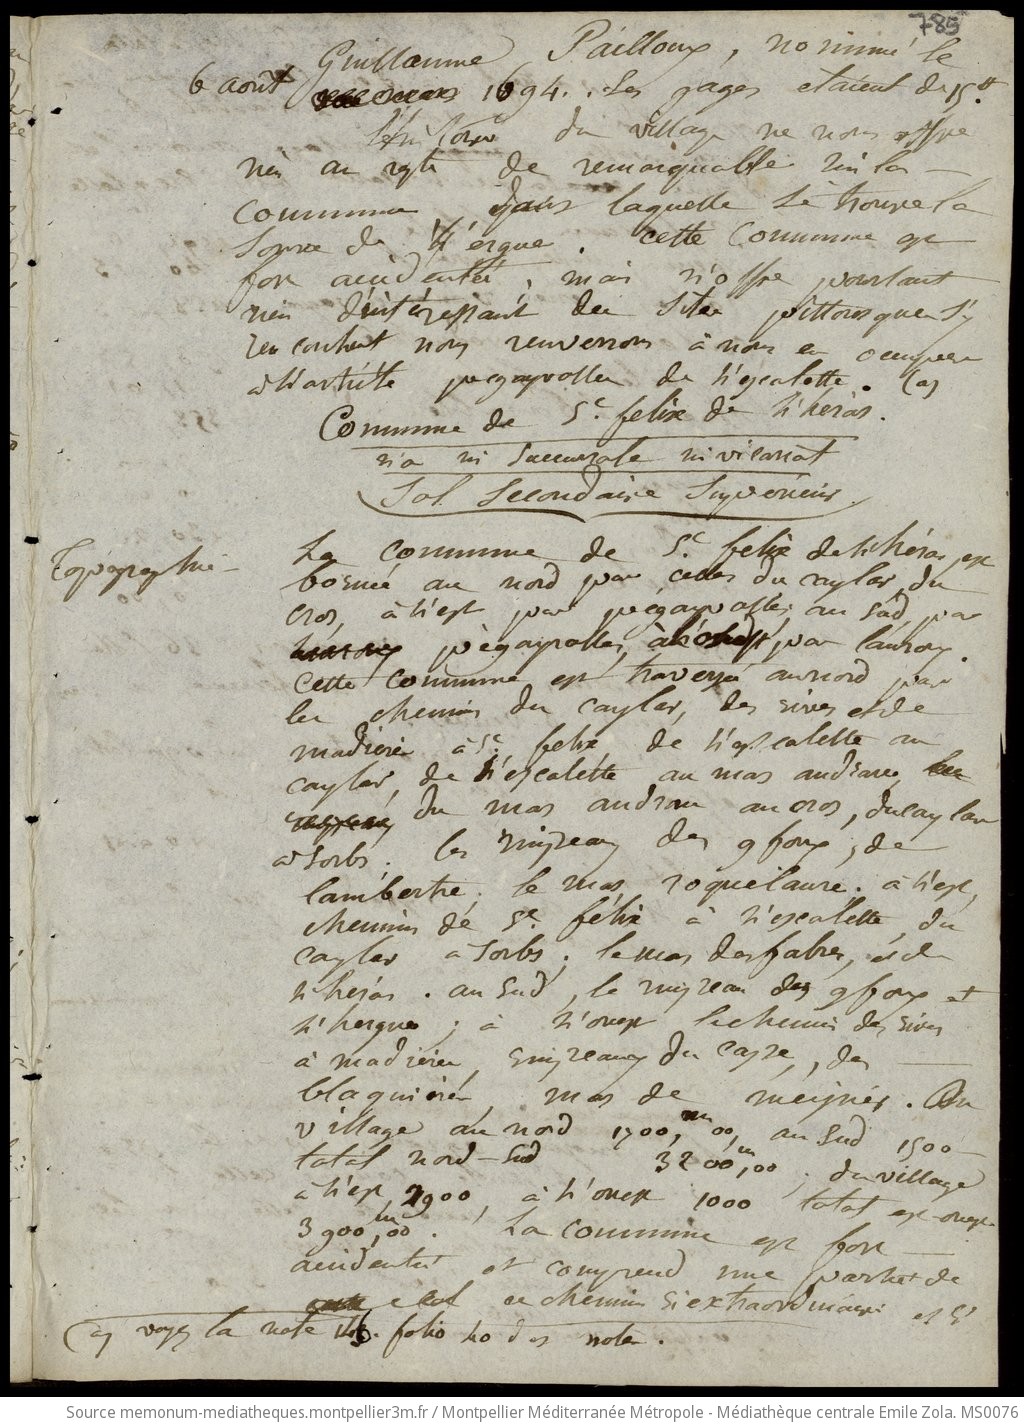 785
Guillaume Pailloux, nommé le
6 août 1694. Les gages etaient de 15
L'histoire du village ne nous offre
rien au reste de remarquable ni la
commune dans laquelle se trouve la
source de l'ergue. cette commune est
fort accidentée, mais n'offre pourtant
rien d'intéressant des sites pittoresques s'y
rencontrent nous renverrons à nous en occuper
à l'article pegayrolles de l'escalette. (a)
Commune de St. felix de l'heras.
n'a ni succursale ni vicariat
Sol Secondaire Supérieur.
Topographie
La commune de St. felix de l'héras est
bornée au nord par celles du caylar, du
cros, à l'est par pégayrolles, au sud, par
pègayrolles, à l'ouest, par lauroux.
Cette commune est traversée au nord par
les chemins du caylar, des rives et de
madières à St. felix, de l'escalette au
caylar, de l'escalette au mas andrau,
du mas andrau au cros, du caylar
à sorbs. les ruisseaux des gfoux, de
lambertie, le mas roquelaure. à l'est,
chemins de St. félix à l'escalette, du
caylar à sorbs, le mas desfabres, et de
l'heras. au sud, le ruisseau des gfoux et
l'hergue; à l'ouest le chemin des rives
à madières, ruisseaux du
blaquière, mas de meynier. Du
village au nord 1700,m00, au sud 1500
total nord-sud 3200,m00, du village
à l'est, 2900, à l'ouest 1000 total est-ouest
3900,m00. La commune est fort
accidentée et comprend une partie de
ce chemin si extraordinaire et si
(a) voyez la note 143. folio 40 des notes.